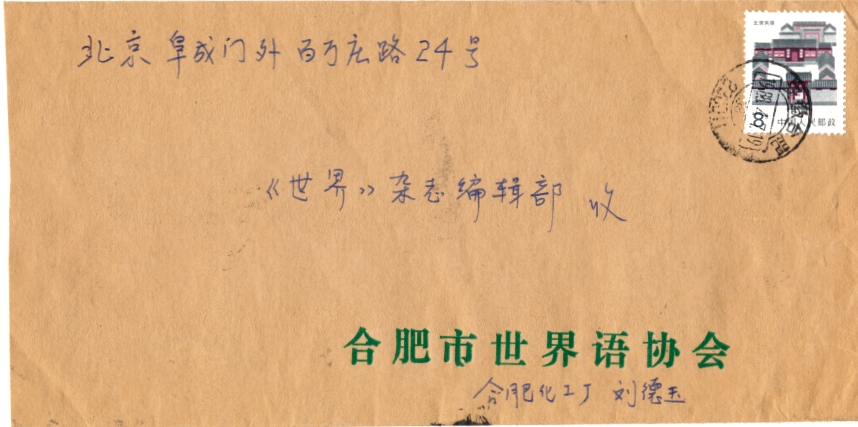 北京阜成门外百万庄路24号
北京民居
中国人民邮政
《世界》杂志编辑部 收
合肥市世界语协会
合肥化工厂 刘德玉